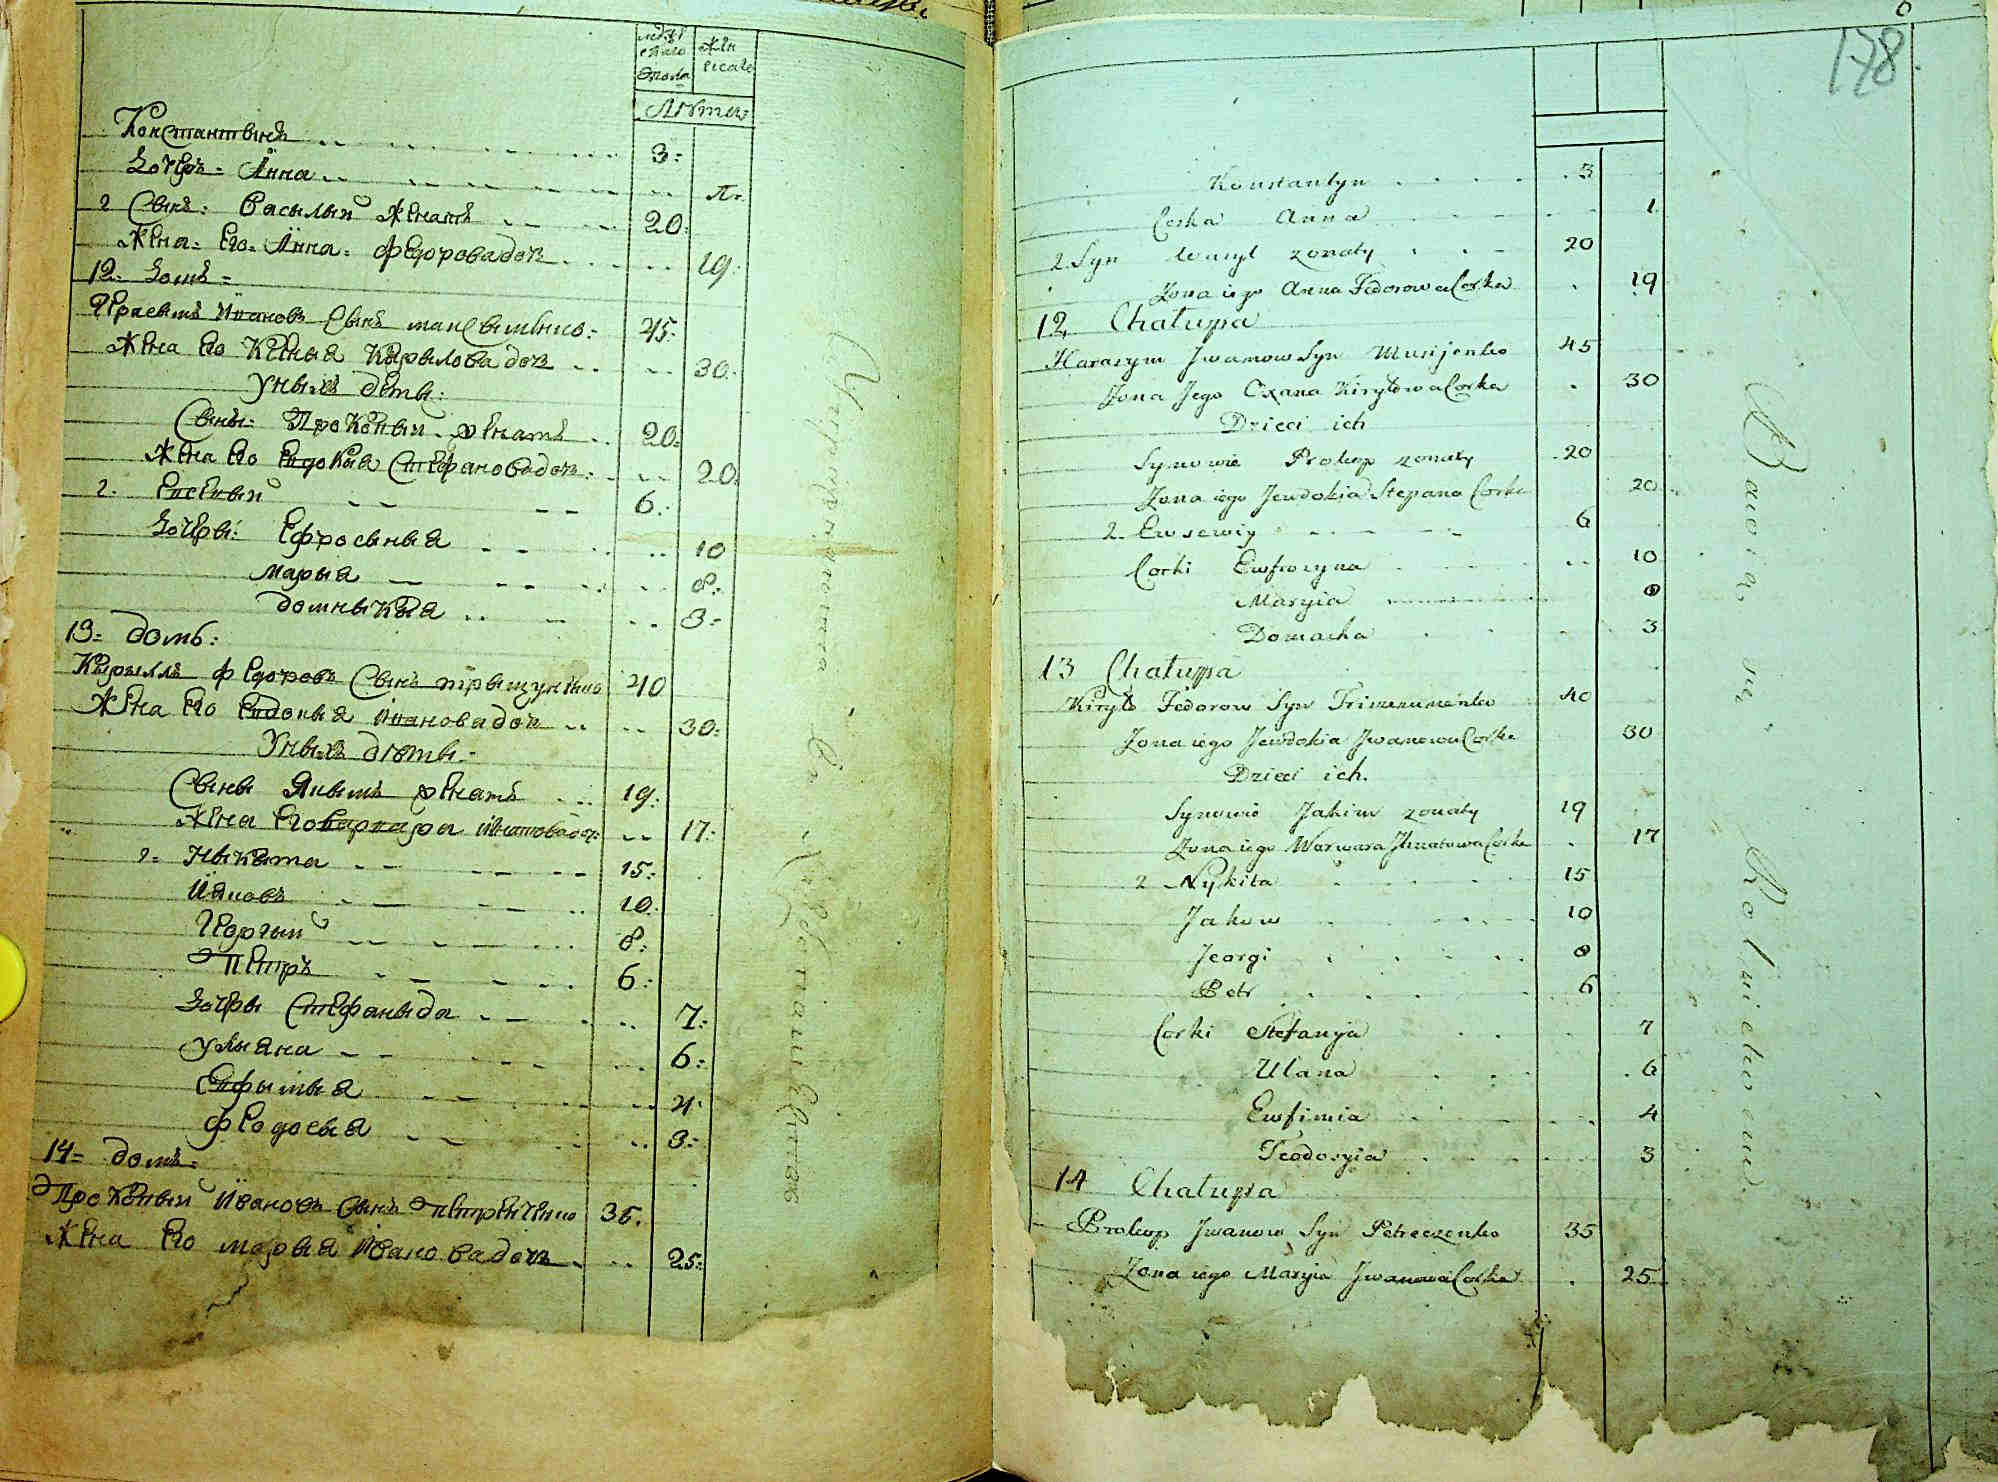 мужескаго пола
женска
Лѣта
Константынъ 3
Дочерь Анна 1
2 Сынъ: Василый женатъ 20
Жена Его Анна Федорова доч 19
12 Домъ
Герасимъ Ивановъ Сынъ 45
Жена Его Кирылова доч 30
У ных дѣты
Сыны: Прокопый женатъ 20
Жена Его Евдокыя Стефанова доч 20
2 Евсевый 6
Дочеры: Ефросыныя 10
Марыя 8
Домныкыя 3
13 Домъ
Кырыллъ Федоровъ Сынъ 40
Жена Его Евдокыя Иванова доч 30
У ныхъ дѣты
Сыны Якымъ женатъ 19
Жена Его Варвара Игнатова доч 17
2 Ныкыта 15
Яковъ 10
Георгый 8
Петръ 6
Дочеры Стефаныда 7
Улыяна 6
Евфымыя 4
Феодосыя 3
14 Домъ
Прокопый Ивановъ Сынъ Петреченко 35
Жена Его Марыя Иванова доч 25
178
Konstantyn 3
Corka Anna 1
2 Syn Wasyl zonaty 20
Zona iego Anna Fedorowa Corka 19
12 Chałupa
Harasym Jwanow Syn Musijenko 45
Zona Jego Oxana Kiryłowa Corka 30
Dzieci ich
Synowie Prokop zonaty 20
Zona iego Jewdokia Stepana Corka 20
2 Ewsewiy 6
Corki Ewfrozyna 10
Maryia 8
Domacha 3
13 Chałupa
Kiryło Fedorow Syn 40
Zona iego Jewdokia Jwanowa Corka 30
Dzieci ich.
Synowie Jakim zonaty 19
Zona iego Warwara Jhnatowa Corka 17
2 Nykita 15
Jakow 10
Jeorgi 8
Petr 6
Corki Stefanya 7
Ulana 6
Ewfimia 4
Teodosyia 3
14 Chałupa
Prokop Jwanow Syn Petreczenko 35
Zona iego Maryia Jwanowa Corka 25